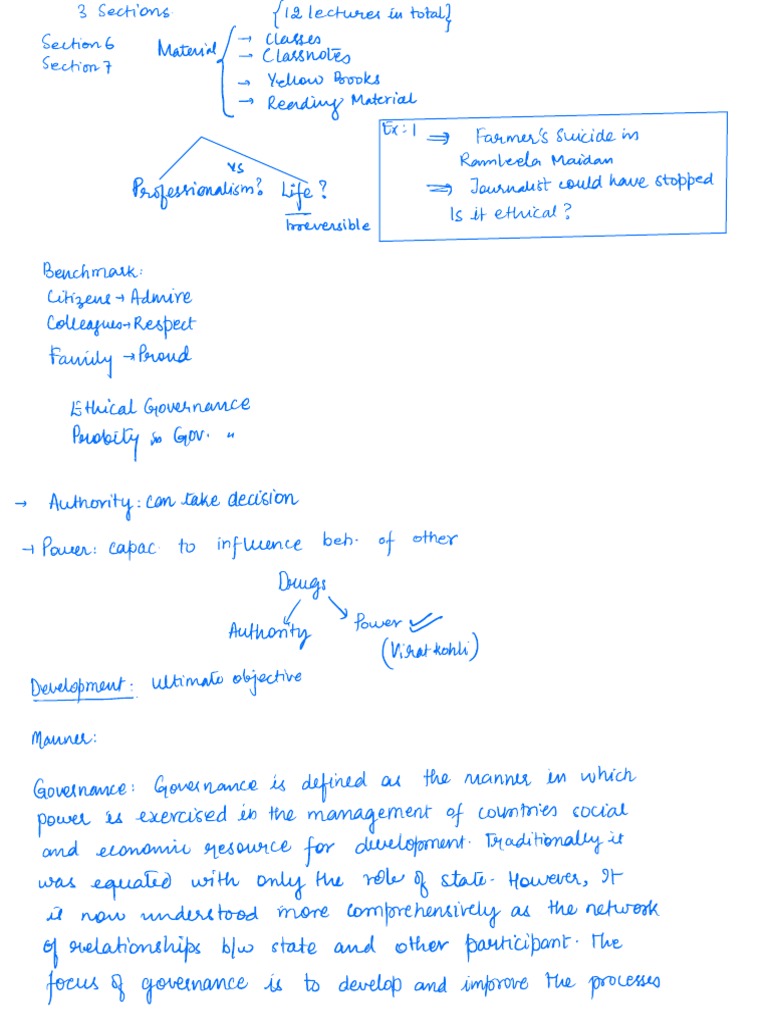 3 Sections {12 lectures in total}
Section 6
Section 7
Material
→ Classes
→ Classnotes
→ Yellow Books
→ Reading Material
Ex: 1 ⇒ Farmer's Suicide in
Ramleela Maidan
⇒ Journalist could have stopped
Is it ethical?
vs
Professionalism? Life?
Irreversible
Benchmark:
Citizens → Admire
Colleagues → Respect
Family → Proud
Ethical Governance
Probity in Gov. "
→ Authority: can take decision
→ Power: capac. to influence beh. of other
Drugs
Authority Power ✓
(Virat Kohli)
Development: ultimate objective
Manner:
Governance: Governance is defined as the manner in which
power is exercised in the management of countries social
and economic resource for development. Traditionally it
was equated with only the role of state. However, It
is now understood more comprehensively as the network
of relationships b/w state and other participant. The
focus of governance is to develop and improve the processes